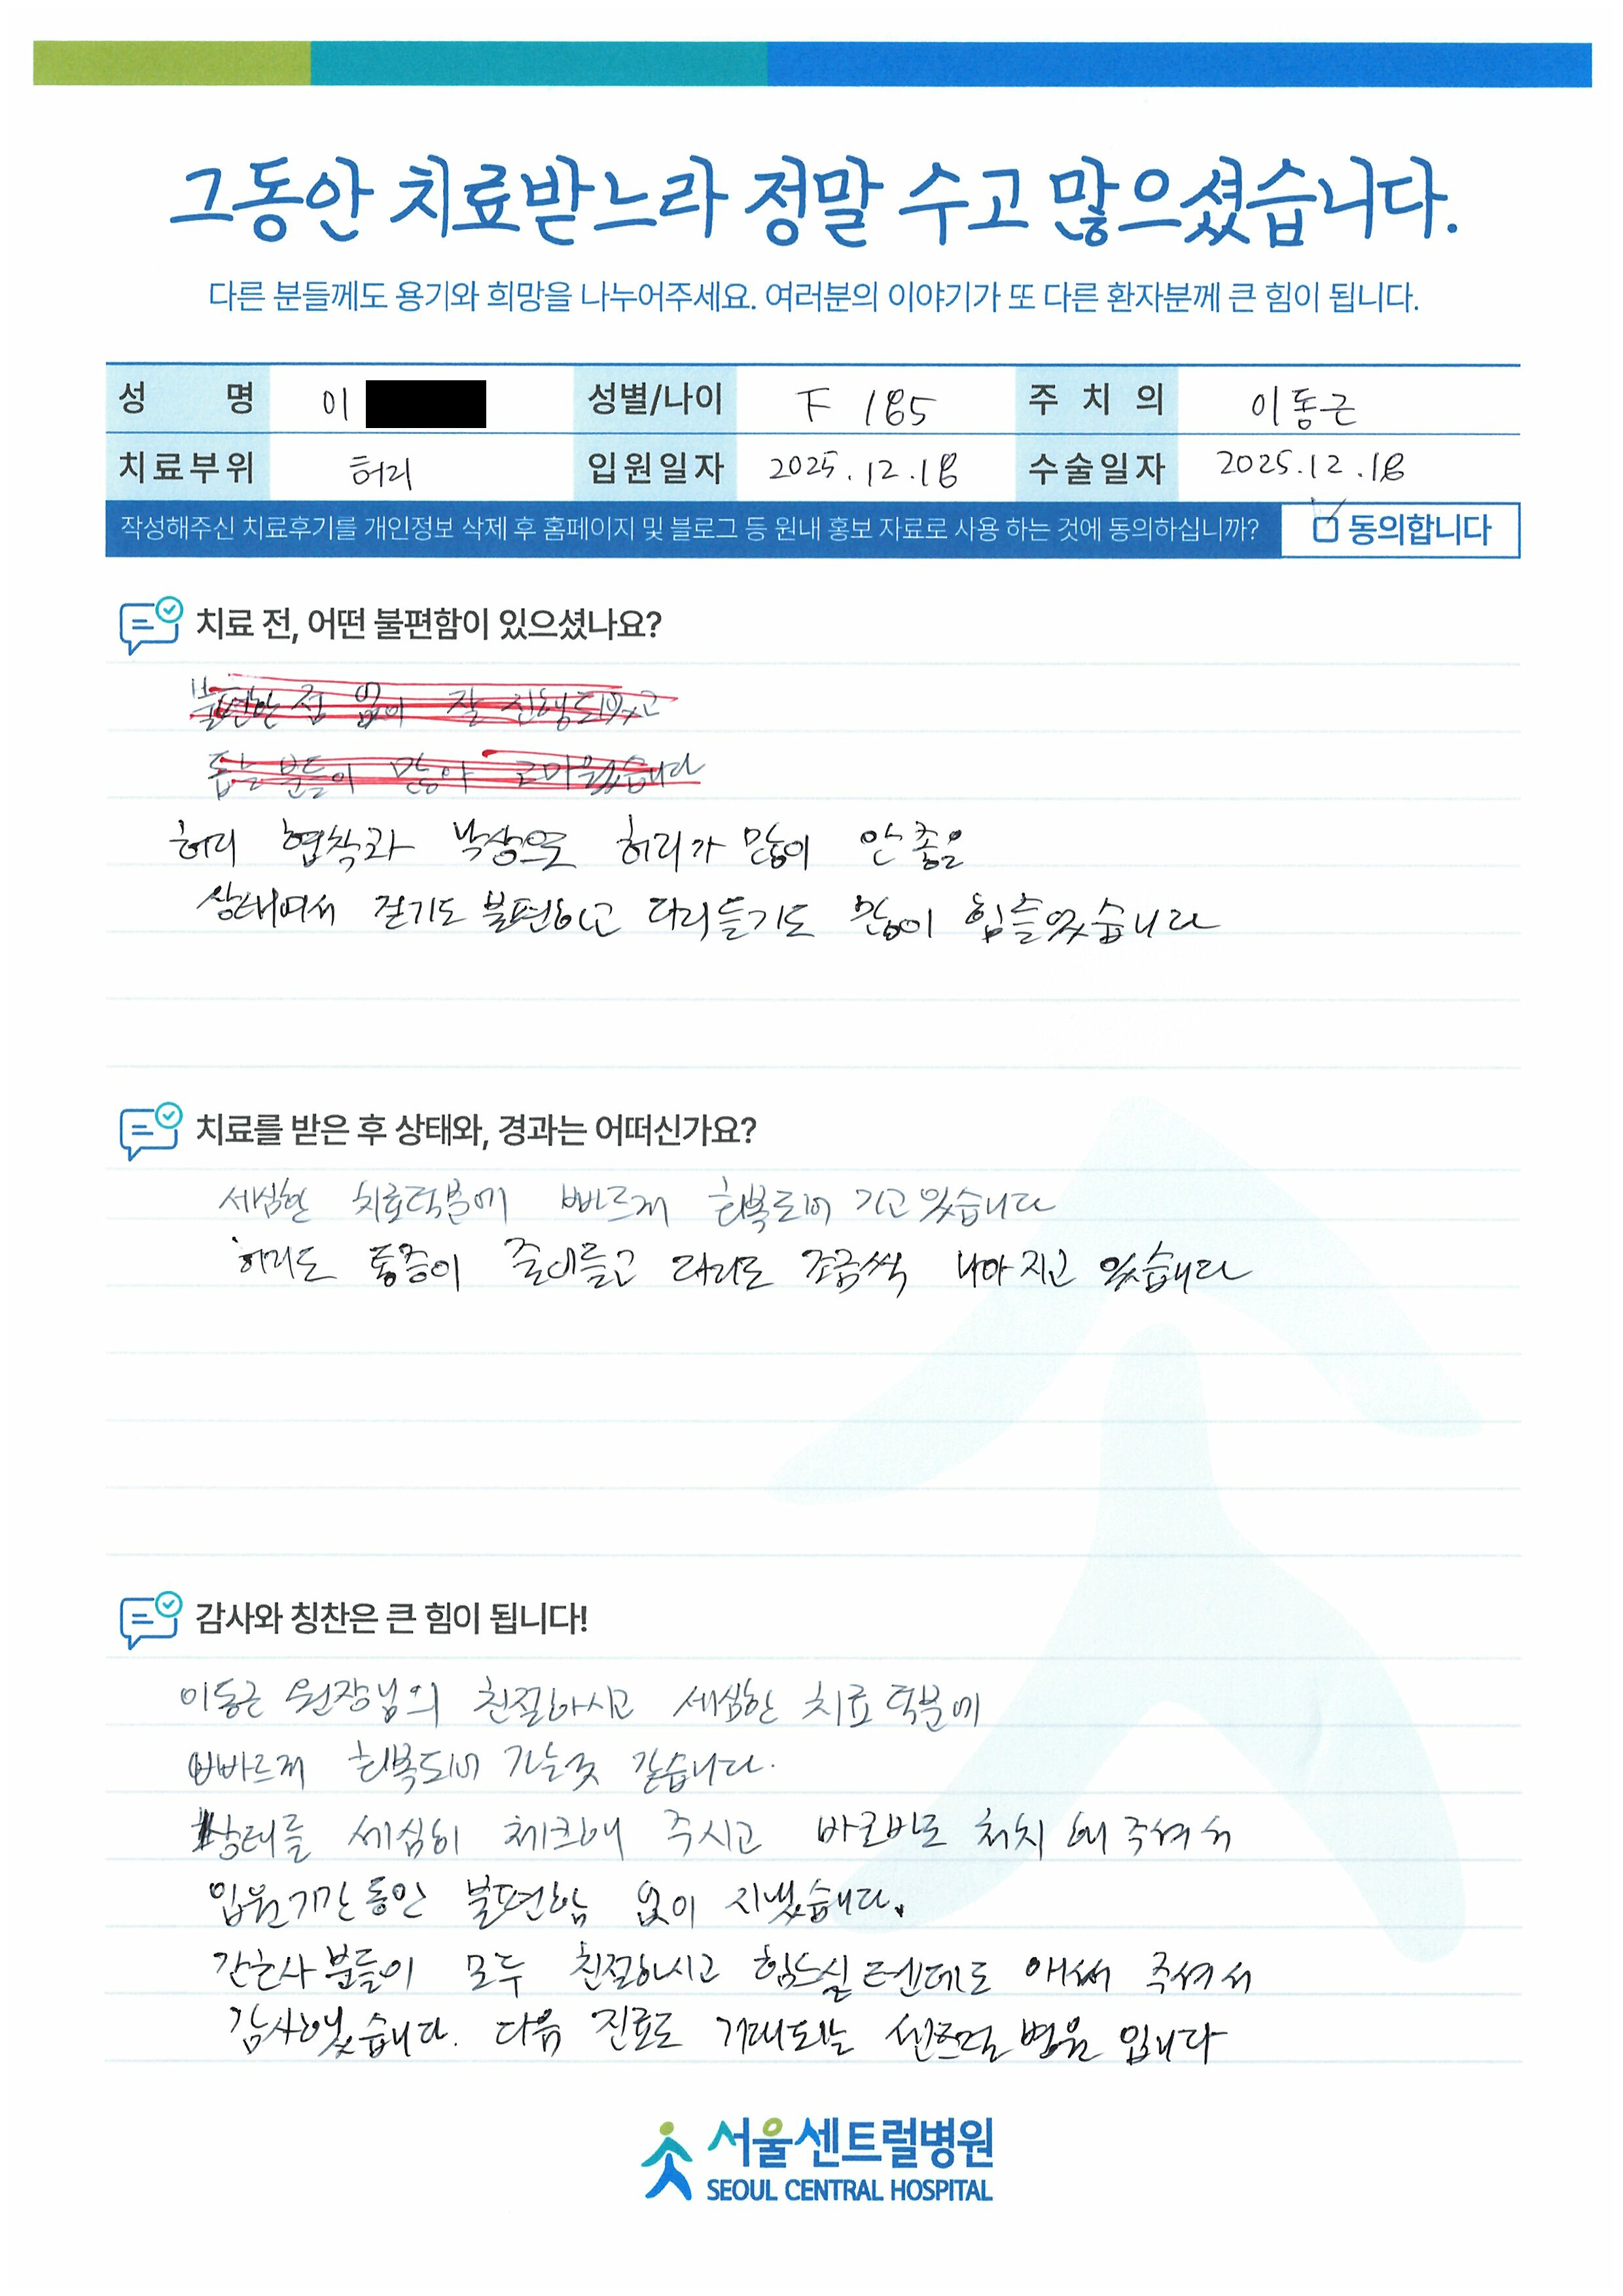 그동안 치료받느라 정말 수고 많으셨습니다.
다른 분들께도 용기와 희망을 나누어주세요. 여러분의 이야기가 또 다른 환자분께 큰 힘이 됩니다.
성 명 이 성별/나이 F / 85 주 치 의 이동근
치료부위 허리 입원일자 2025.12.18 수술일자 2025.12.18
작성해주신 치료후기를 개인정보 삭제 후 홈페이지 및 블로그 등 원내 홍보 자료로 사용 하는 것에 동의하십니까? 동의합니다
치료 전, 어떤 불편함이 있으셨나요?
불편한 점 없이 잘 진행되었고
돕는 분들이 많아 고마웠습니다
허리 협착과 낙상으로 허리가 많이 안 좋은
상태여서 걷기도 불편하고 다리들기도 많이 힘들었습니다
치료를 받은 후 상태와, 경과는 어떠신가요?
세심한 치료덕분에 빠르게 회복되어 가고 있습니다
허리도 통증이 줄어들고 다리도 조금씩 나아지고 있습니다
감사와 칭찬은 큰 힘이 됩니다!
이동근 원장님의 친절하시고 세심한 치료 덕분에
빠르게 회복되어 가는것 같습니다.
상태를 세심히 체크해 주시고 바로바로 처치 해 주셔서
입원기간동안 불편함 없이 지냈습니다.
간호사분들이 모두 친절하시고 힘드실텐데도 애써 주셔서
감사했습니다. 다음 진료도 기대되는 센트럴 병원 입니다
서울센트럴병원
SEOUL CENTRAL HOSPITAL